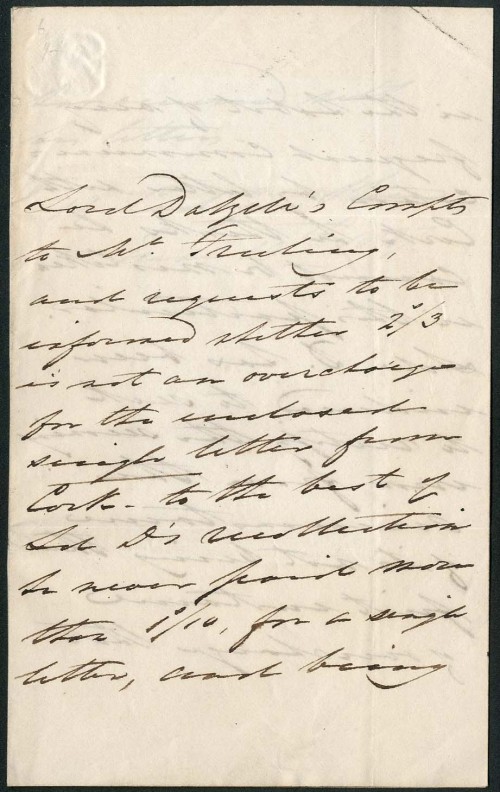 Lord Dalzell's Compts
to Mr. Freeling,
and requests to be
informed whether 2s/3
is not an overcharge
for the enclosed
single letter from
Cork - to the best of
Ld D's recollection
he never paid more
than 1s/10, for a single
letter, and being